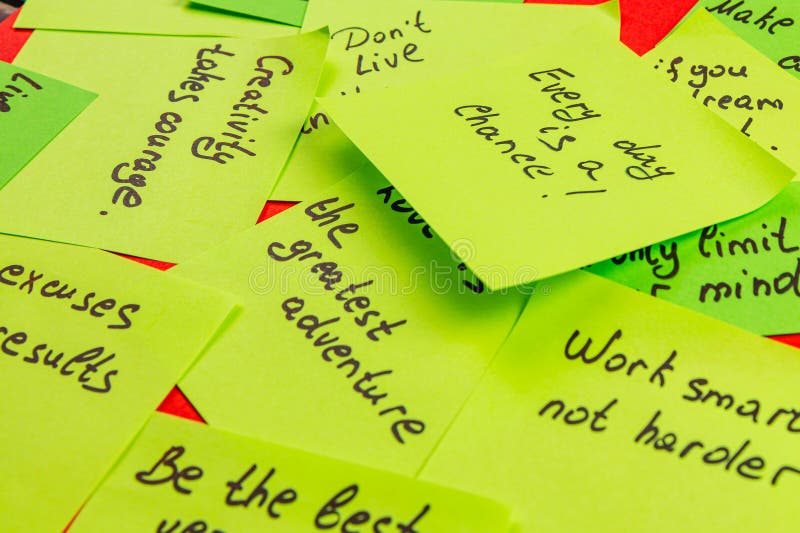 Don't
Live
Make
if you
dream
Every day
is a
chance!
Creativity
takes courage.
Live
the
greatest
adventure
only limit
mind
excuses
results
Work smart
not harder
Be the best
dreamstime